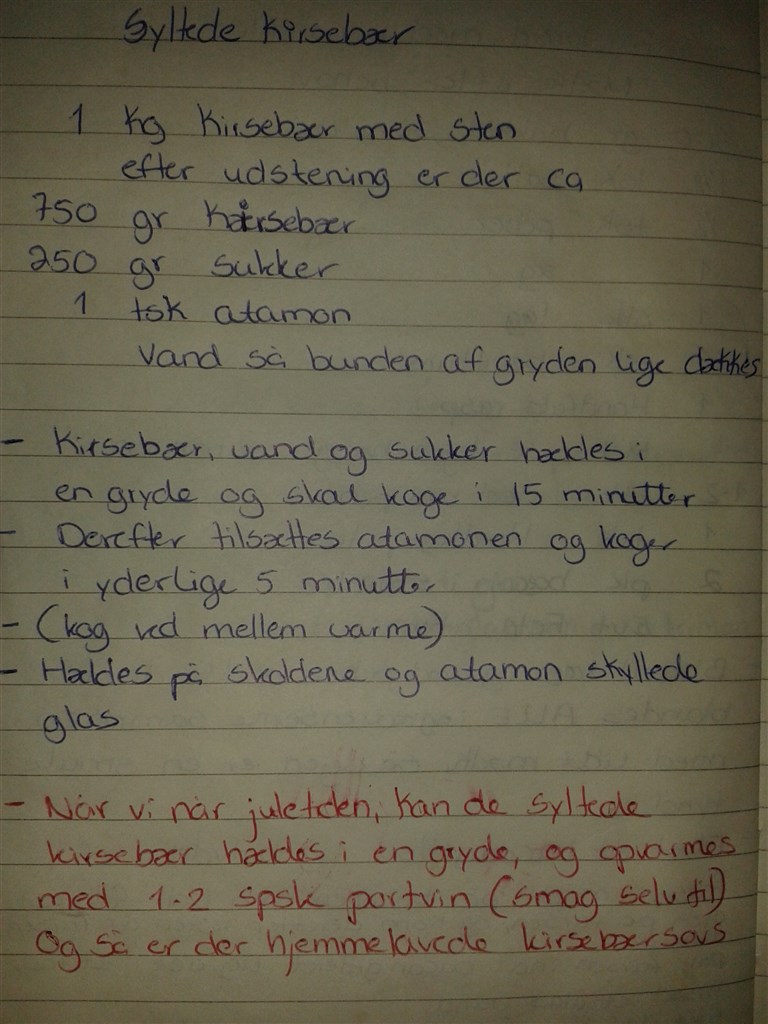 Syltede kirsebær
1 kg kirsebær med sten
efter udstening er der ca
750 gr kirsebær
250 gr sukker
1 tsk atamon
Vand så bunden af gryden lige dækkes
- Kirsebær, vand og sukker hældes i
en gryde og skal koge i 15 minutter
- Derefter tilsættes atamonen og koger
i yderlige 5 minutter
- (kog ved mellem varme)
- Hældes på skoldene og atamon skyllede
glas
- Når vi når juletiden, kan de syltede
kirsebær hældes i en gryde, og opvarmes
med 1-2 spsk portvin (smag selv til)
Og så er der hjemmelavede kirsebærsovs